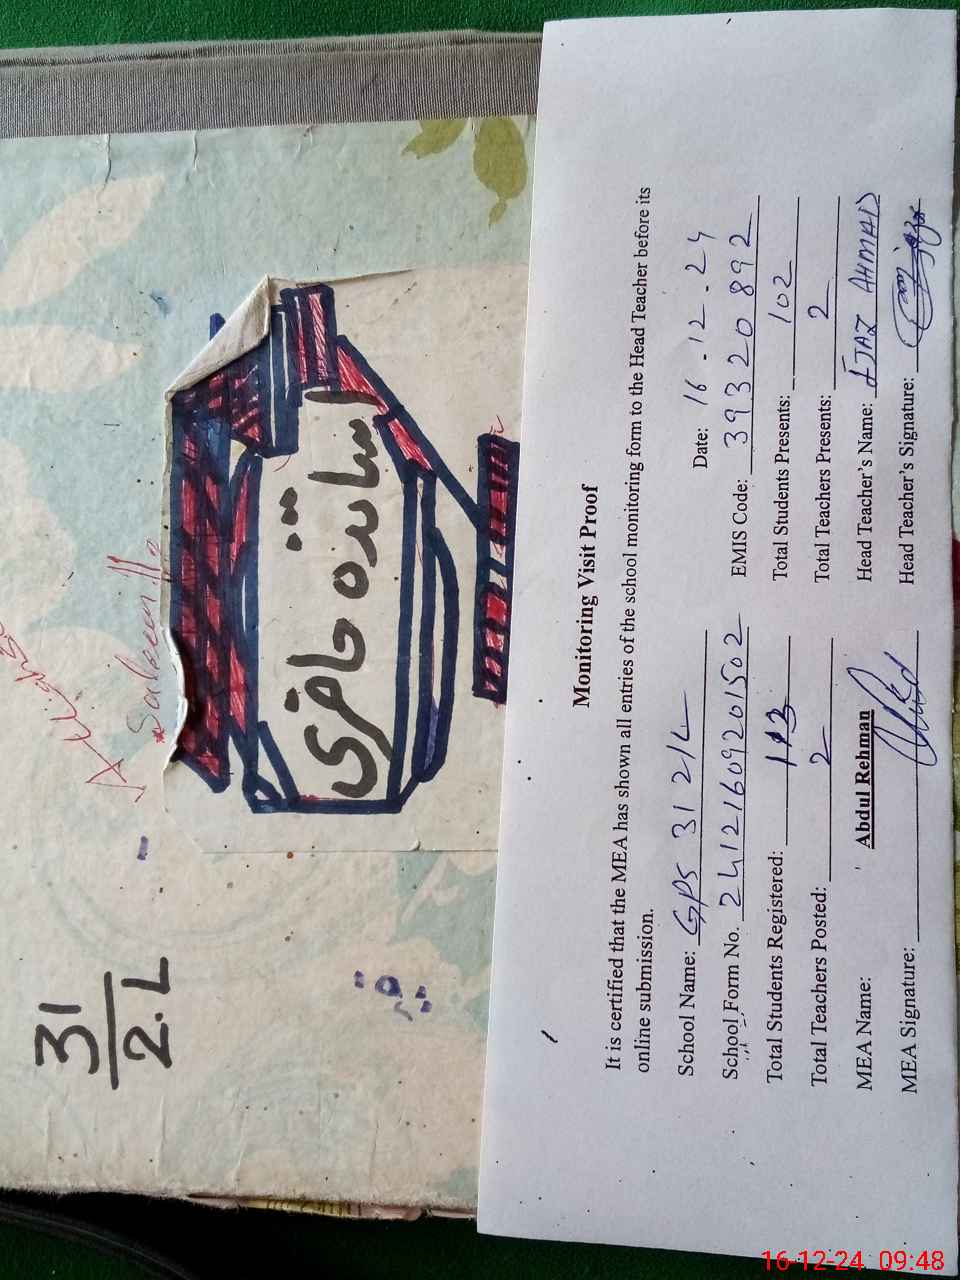 31
2.L
اساتذہ حاضری
Monitoring Visit Proof
It is certified that the MEA has shown all entries of the school monitoring form to the Head Teacher before its
online submission.
School Name: GPS 31 2/L Date: 16-12-24
School Form No. 24121609201502 EMIS Code: 39320892
Total Students Registered: 113 Total Students Presents: 102
Total Teachers Posted: 2 Total Teachers Presents: 2
MEA Name: Abdul Rehman Head Teacher's Name: IJAZ AHMAD
MEA Signature: Head Teacher's Signature:
16-12-24 09:48